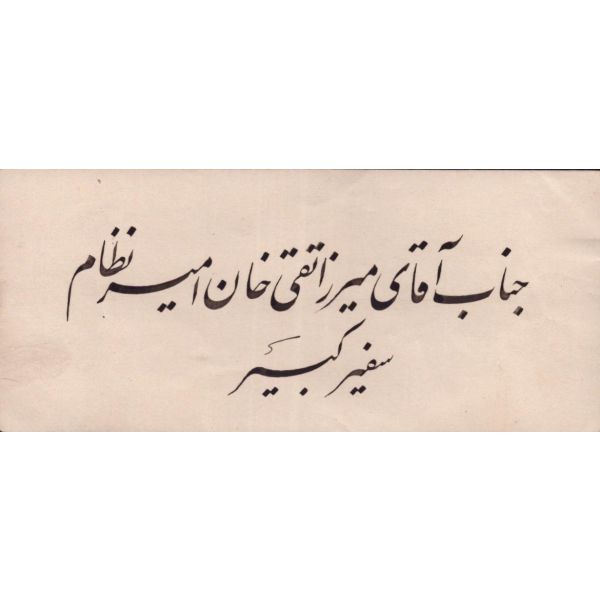 جناب آقای میرزا تقی خان امیر نظام
سفیر کبیر